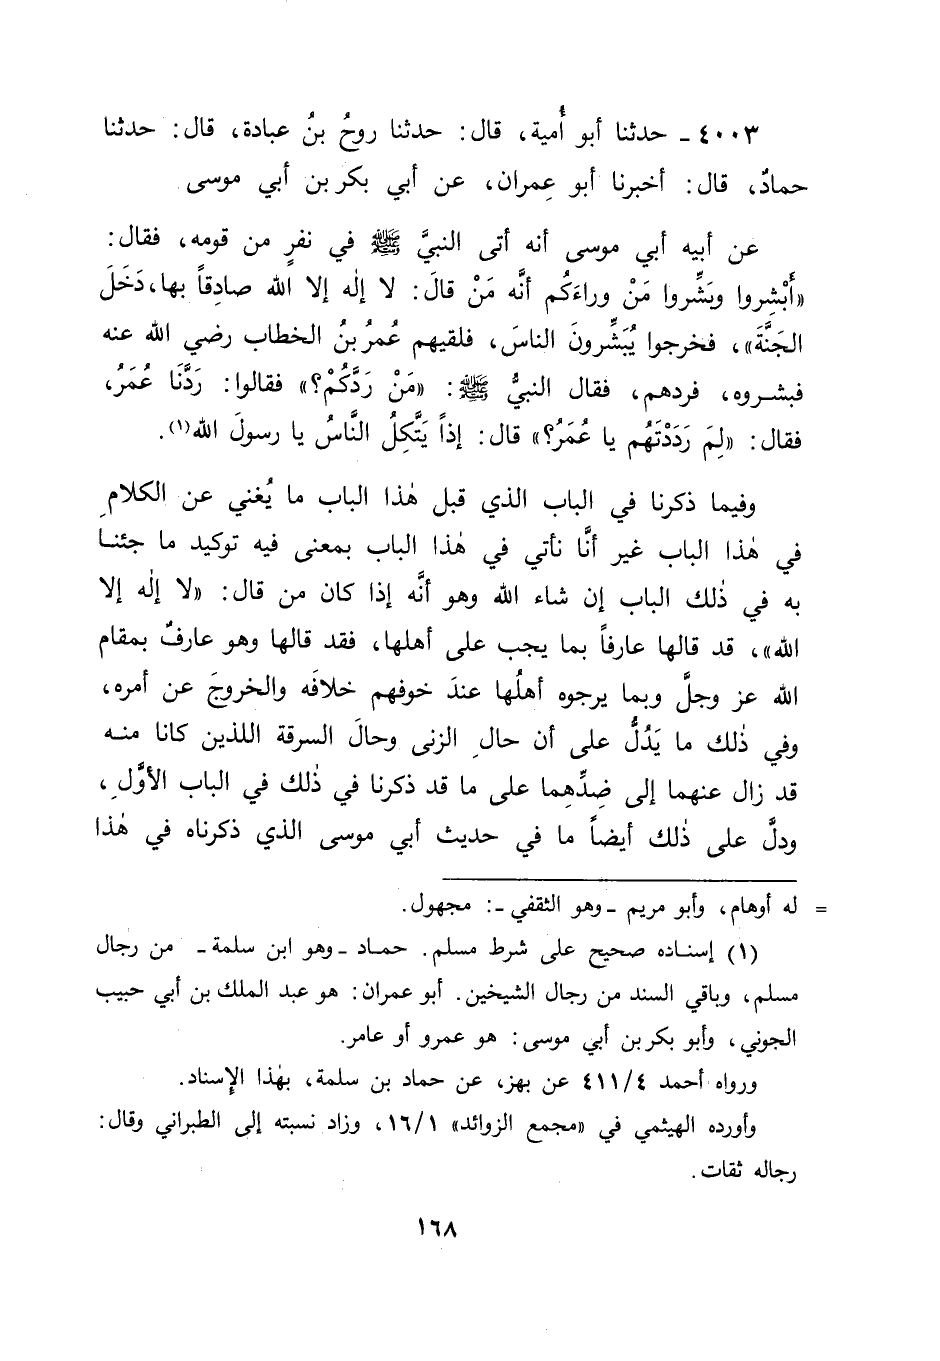 ٤٠٠٣ ـ حدثنا أبو أُمية، قال: حدثنا روحُ بنُ عبادة، قال: حدثنا
حمادٌ، قال: أخبرنا أبو عِمران، عن أبي بكر بن أبي موسى
عن أبيه أبي موسى أنه أتى النبيَّ ﷺ في نفرٍ من قومه، فقال:
«أَبْشِروا وبَشِّروا مَنْ وراءَكُم أنَّه مَنْ قالَ: لا إلٰه إلا الله صادِقاً بها، دَخَلَ
الجَنَّةَ»، فخرجوا يُبَشِّرونَ الناسَ، فلقيهم عُمرُ بنُ الخطاب رضي الله عنه
فبشروه، فردهم، فقال النبيُّ ﷺ: «مَنْ رَدَّكُمْ؟» فقالوا: رَدَّنَا عُمَرُ،
فقال: «لِمَ رَدَدْتَهُم يا عُمَرُ؟» قال: إذاً يَتَّكِلُ النَّاسُ يا رسولَ الله(١).
وفيما ذكرنا في الباب الذي قبل هٰذا الباب ما يُغني عن الكلامِ
في هٰذا الباب غير أنَّا نأتي في هٰذا الباب بمعنى فيه توكيد ما جئنا
به في ذٰلك الباب إن شاء الله وهو أنَّه إذا كان من قال: «لا إلٰه إلا
الله»، قد قالها عارفاً بما يجب على أهلها، فقد قالها وهو عارفٌ بمقام
الله عز وجلَّ وبما يرجوه أهلُها عندَ خوفهم خلافَه والخروجَ عن أمره،
وفي ذٰلك ما يَدُلُّ على أن حالِ الزنى وحالَ السرقة اللذين كانا منه
قد زال عنهما إلى ضِدِّهِما على ما قد ذكرنا في ذٰلك في الباب الأوَّلِ،
ودلَّ على ذٰلك أيضاً ما في حديث أبي موسى الذي ذكرناه في هٰذا
= له أوهام، وأبو مريم ـ وهو الثقفي ـ: مجهول.
(١) إسناده صحيح على شرط مسلم. حماد ـ وهو ابن سلمة ـ من رجال
مسلم، وباقي السند من رجال الشيخين. أبو عمران: هو عبد الملك بن أبي حبيب
الجوني، وأبو بكر بن أبي موسى: هو عمرو أو عامر.
ورواه أحمد ٤١١/٤ عن بهز، عن حماد بن سلمة، بهٰذا الإِسناد.
وأورده الهيثمي في «مجمع الزوائد» ١٦/١، وزاد نسبته إلى الطبراني وقال:
رجاله ثقات.
١٦٨